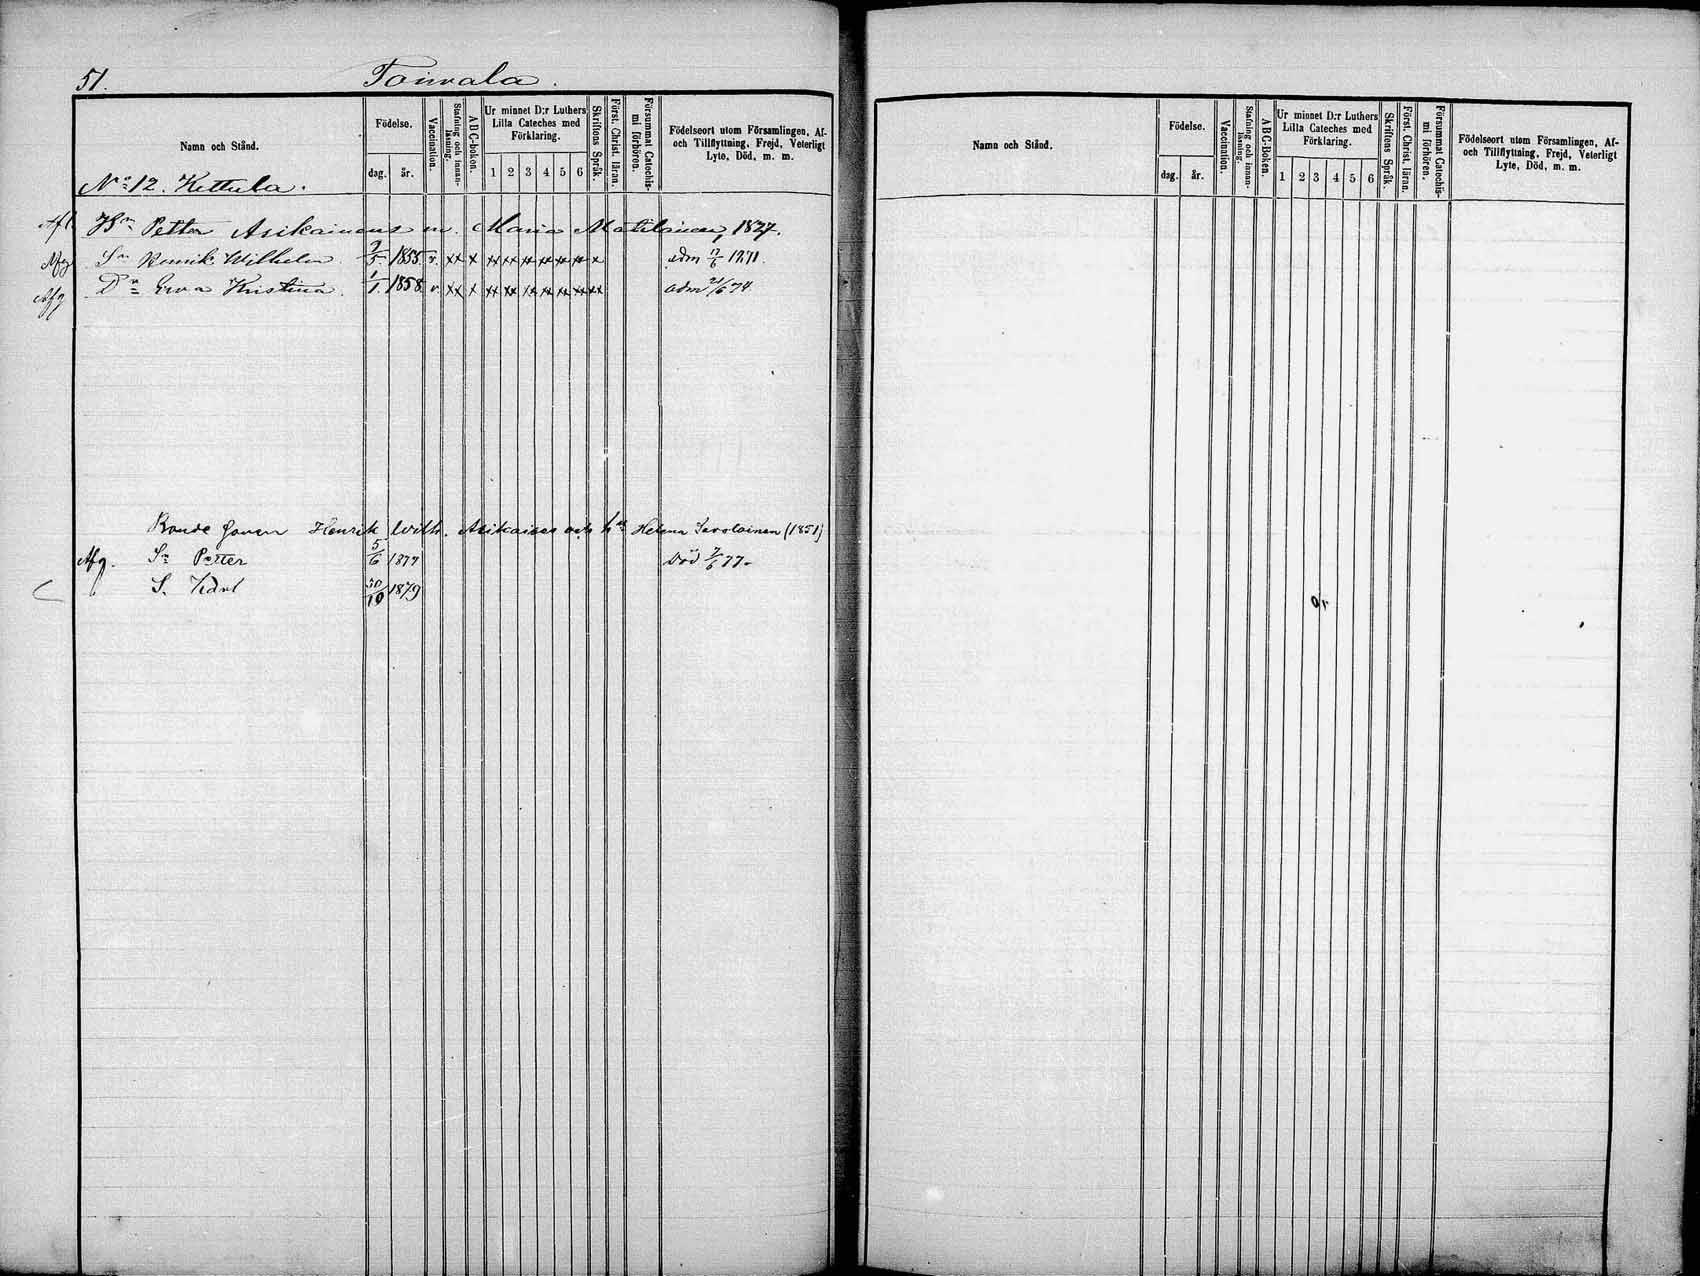 51. Toivala.
Namn och Stånd.
Födelse.
dag. år.
Vaccination.
Stafning och innan-läsning.
ABC-boken.
Ur minnet D:r Luthers Lilla Cateches med Förklaring.
1 2 3 4 5 6
Skriftens Språk.
Först. Christ. läran.
Försummat Catechis-mi förhören.
Födelseort utom Församlingen, Af-
och Tillflyttning, Frejd, Veterligt
Lyte, Död, m. m.
No 12. Kettula.
Bn Petter Asikainens m. Maria Matilainen, 1827.
Afg Sn Henrik Wilhelm 2/5 1855 v. xx x xx xx xx xx xx xx x adm 17/6 1871.
Afg Dr Ewa Kristina. 1/1 1858 v. xx x xx xx xx xx xx xx xx adm 21/6 74
Bonde Sonen Henrik Wilh. Asikainen och hu Helena Savolainen (1851)
Afg. Sn Petter 5/6 1877 Död 7/6 77.
S. Karl 30/10 1879
Namn och Stånd.
Födelse.
dag. år.
Vaccination.
Stafning och innan-läsning.
ABC-Boken.
Ur minnet D:r Luthers
Lilla Cateches med
Förklaring.
1 2 3 4 5 6
Skriftens Språk.
Först. Christ. läran.
Försummat Catechis-mi förhören.
Födelseort utom Församlingen, Af-
och Tillflyttning, Frejd, Veterligt
Lyte, Död, m. m.